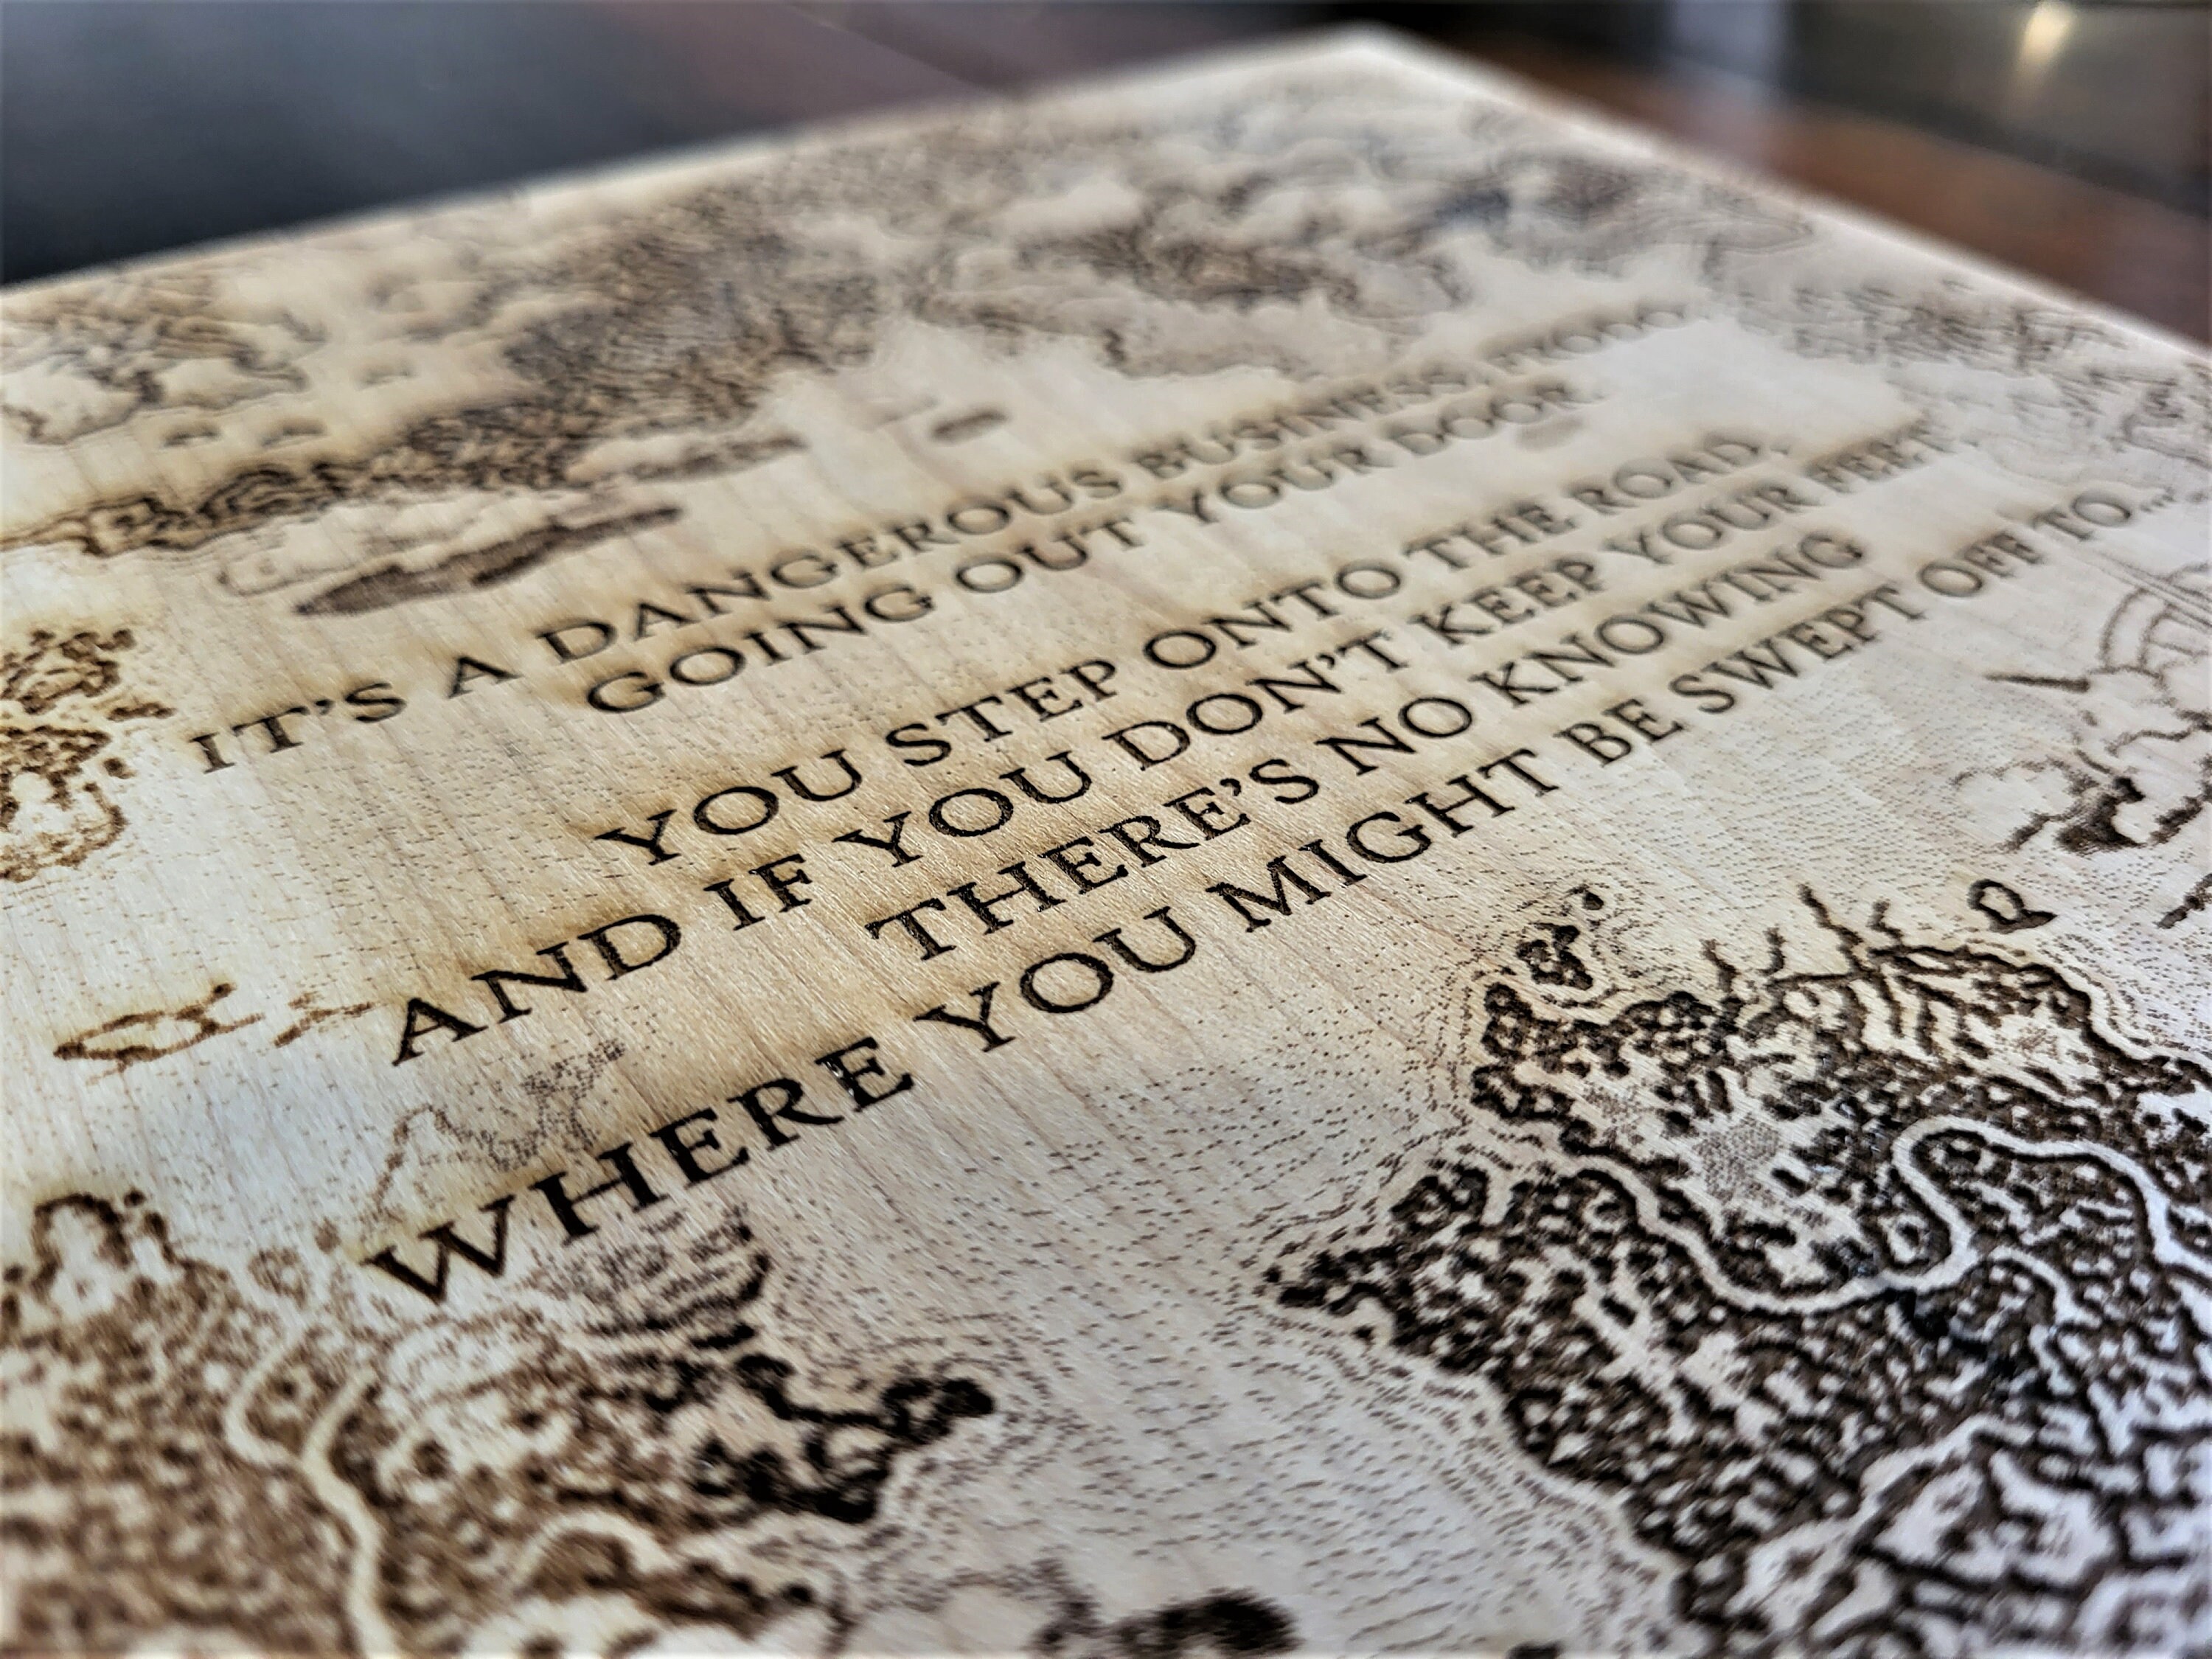 IT'S A DANGEROUS BUSINESS FRODO,
GOING OUT YOUR DOOR.
YOU STEP ONTO THE ROAD,
AND IF YOU DON'T KEEP YOUR FEET,
THERE'S NO KNOWING
WHERE YOU MIGHT BE SWEPT OFF TO...